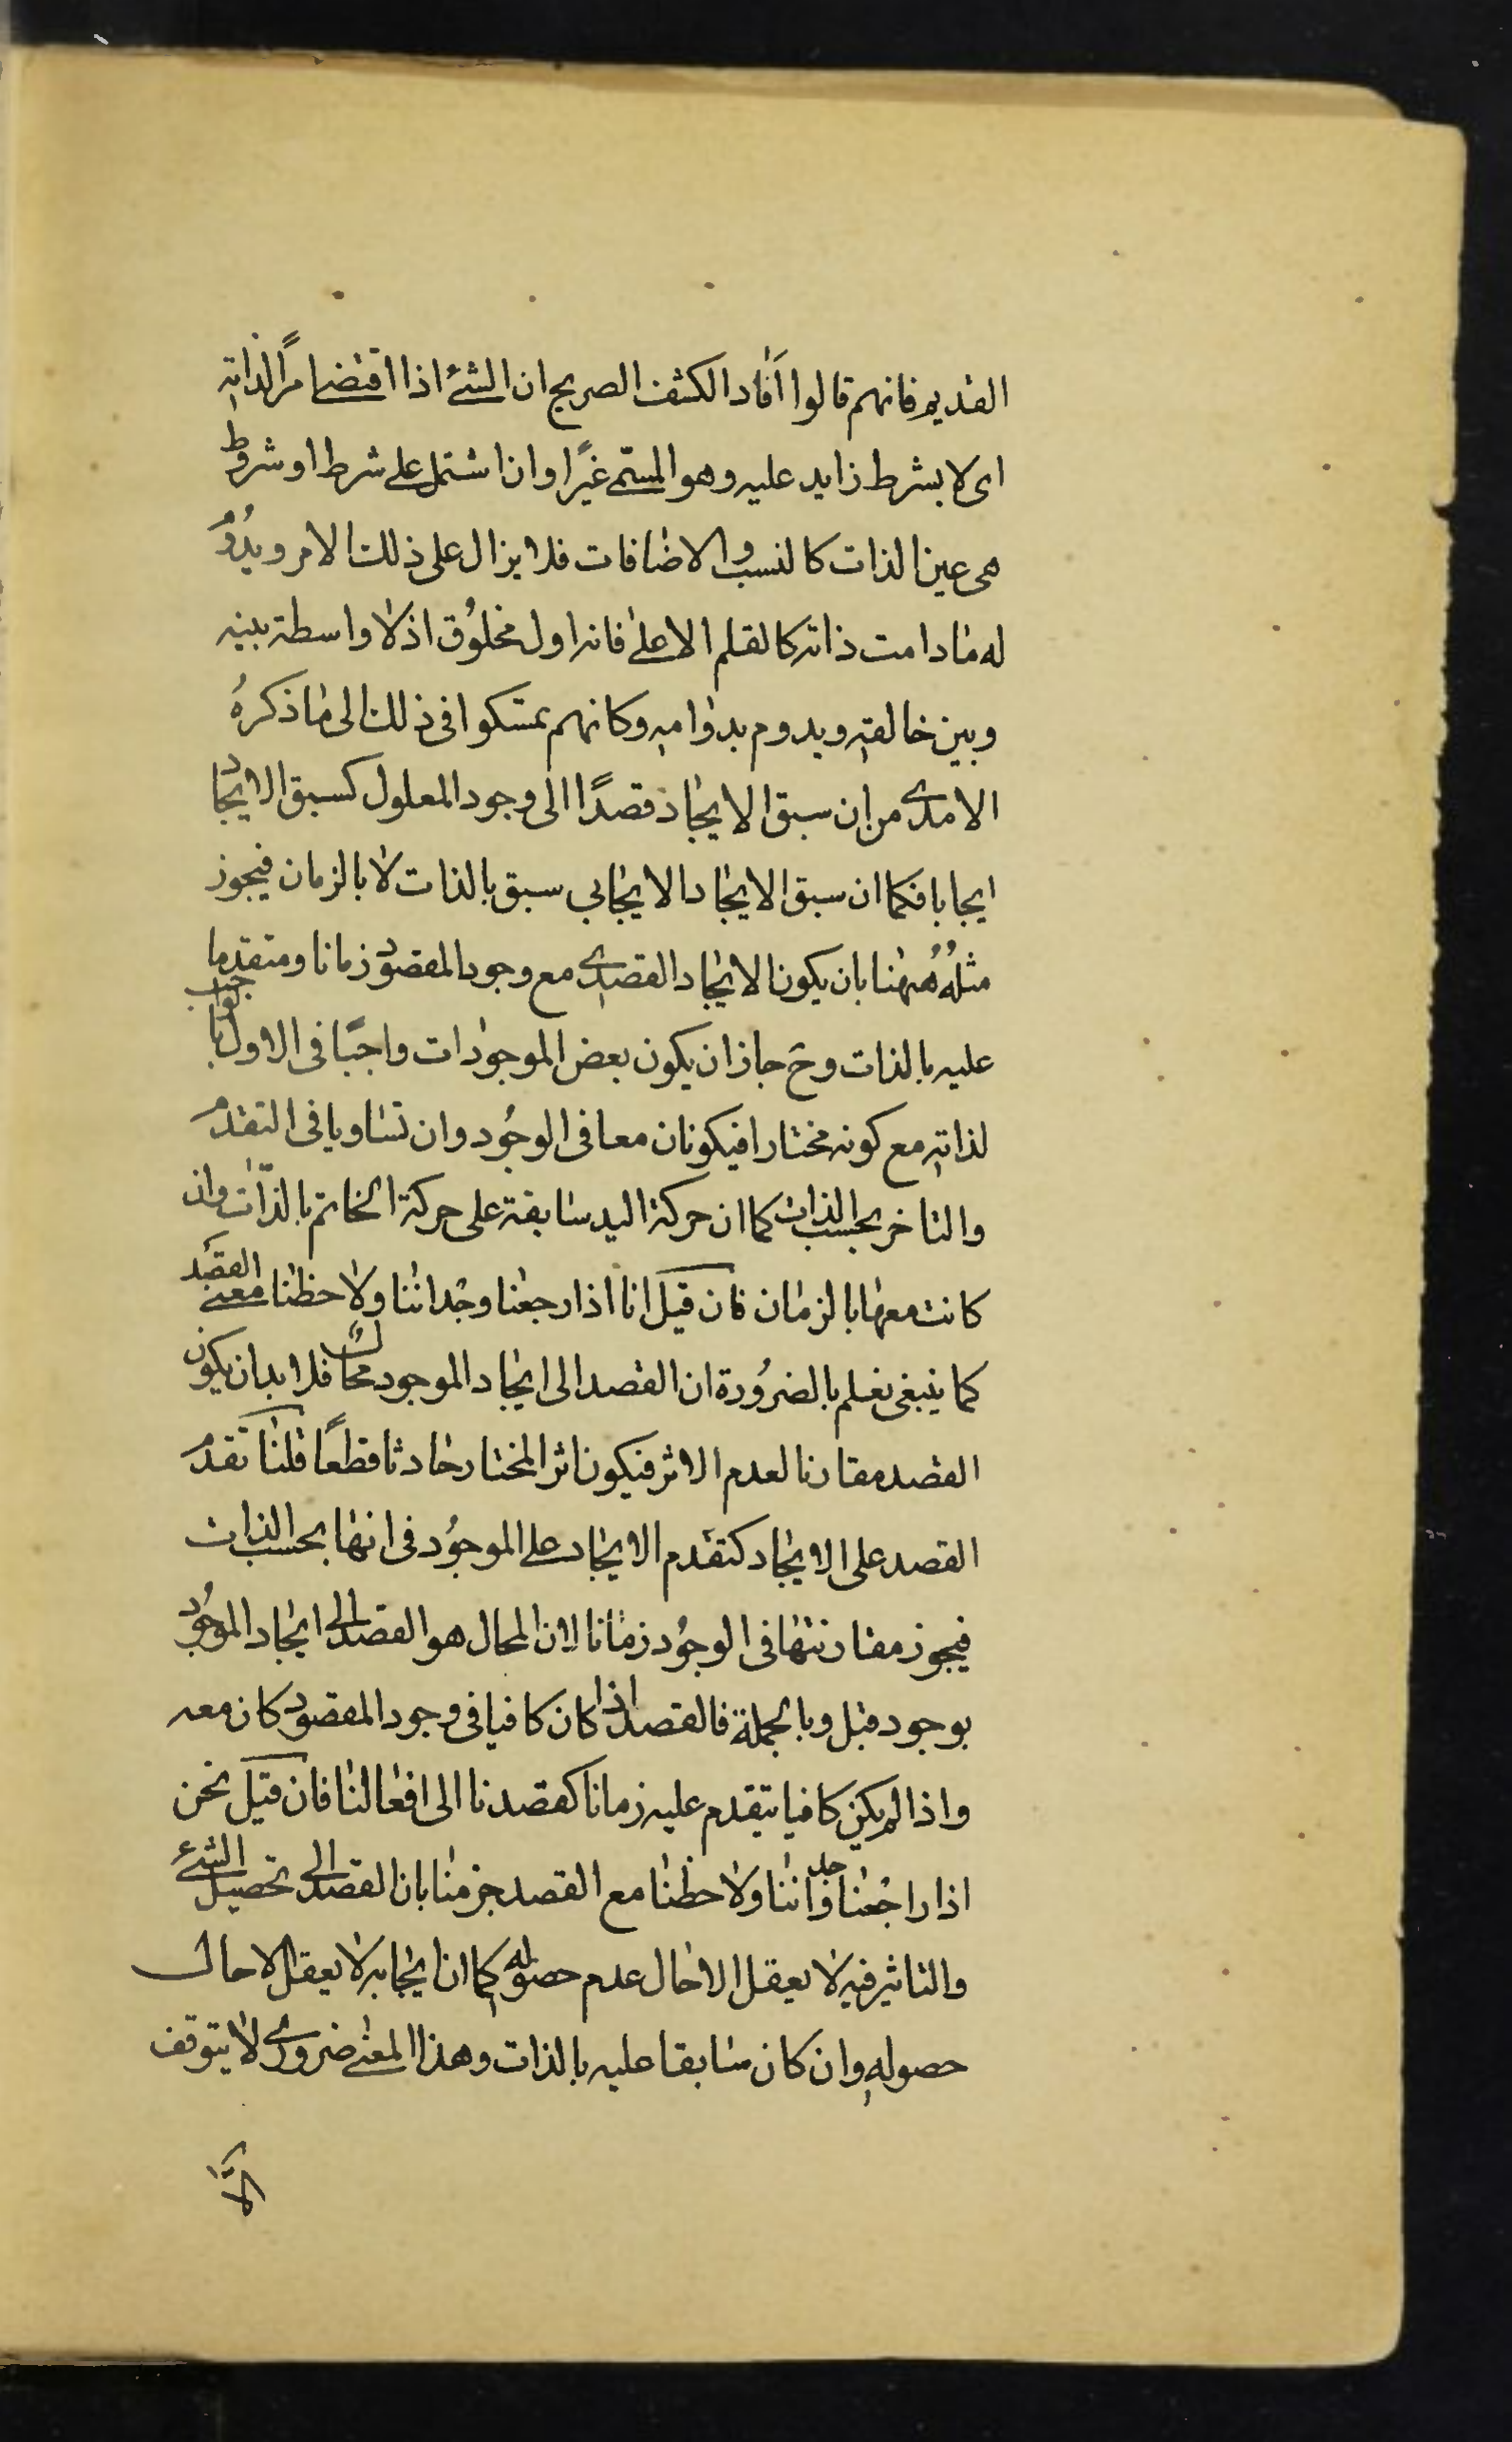 القديم فانهم قالوا افاد الكشف الصريح ان الشئ اذا اقتضى امرًا لذاته
اى لا بشرط زايد عليه وهو المسمّى غيرًا وان اشتمل على شرط او شروط
هى عين الذات كالنسب والاضافات فلا يزال على ذلك الامر ويدوم
له ما دامت ذاته كالقلم الاعلى فانه اول مخلوق اذ لا واسطة بينه
وبين خالقه ويدوم بدوامه وكانهم تمسكوا فى ذلك الى ما ذكره
الامدى من ان سبق الايجاد قصدًا الى وجود المعلول كسبق الايجاد
ايجابا فكما ان سبق الايجاد الايجابى سبق بالذات لا بالزمان فيجوز
مثله ههنا بان يكون الايجاد القصدى مع وجود المقصود زمانا ومتقدما
عليه بالذات وح جاز ان يكون بعض الموجودات واجبًا فى الاول بالواجب
لذاته مع كونه مختارا فيكونان معا فى الوجود وان تساويا فى التقدم
والتاخر بحسب الذات كما ان حركة اليد سابقة على حركة الخاتم بالذات وان
كانت معها بالزمان فان قيل انا اذا رجعنا وجداننا ولاحظنا معنى القصد
كما ينبغى نعلم بالضرورة ان القصد الى ايجاد الموجود محال فلا بد ان يكون
القصد مقارنا لعدم الاثر فيكون اثر المختار حادثا قطعًا قلنا تقدم
القصد على الايجاد كتقدم الايجاد على الموجود فى انها بحسب الذات
فيجوز مقارنتها فى الوجود زمانا لان المحال هو القصد الى ايجاد الموجود
بوجود قبل وبالجملة فالقصد اذا كان كافيا فى وجود المقصود كان معه
واذا لم يكن كافيا يتقدم عليه زمانا كقصدنا الى افعالنا فان قيل نحن
اذا راجعنا وجداننا ولاحظنا مع القصد جزمنا بان القصد الى تحصيل الشئ
والتاثير فيه لا يعقل الا حال عدم حصوله كما ان ايجابه لا يعقل الا حال
حصوله وان كان سابقا عليه بالذات وهذا المعنى ضرورى لا يتوقف
الا